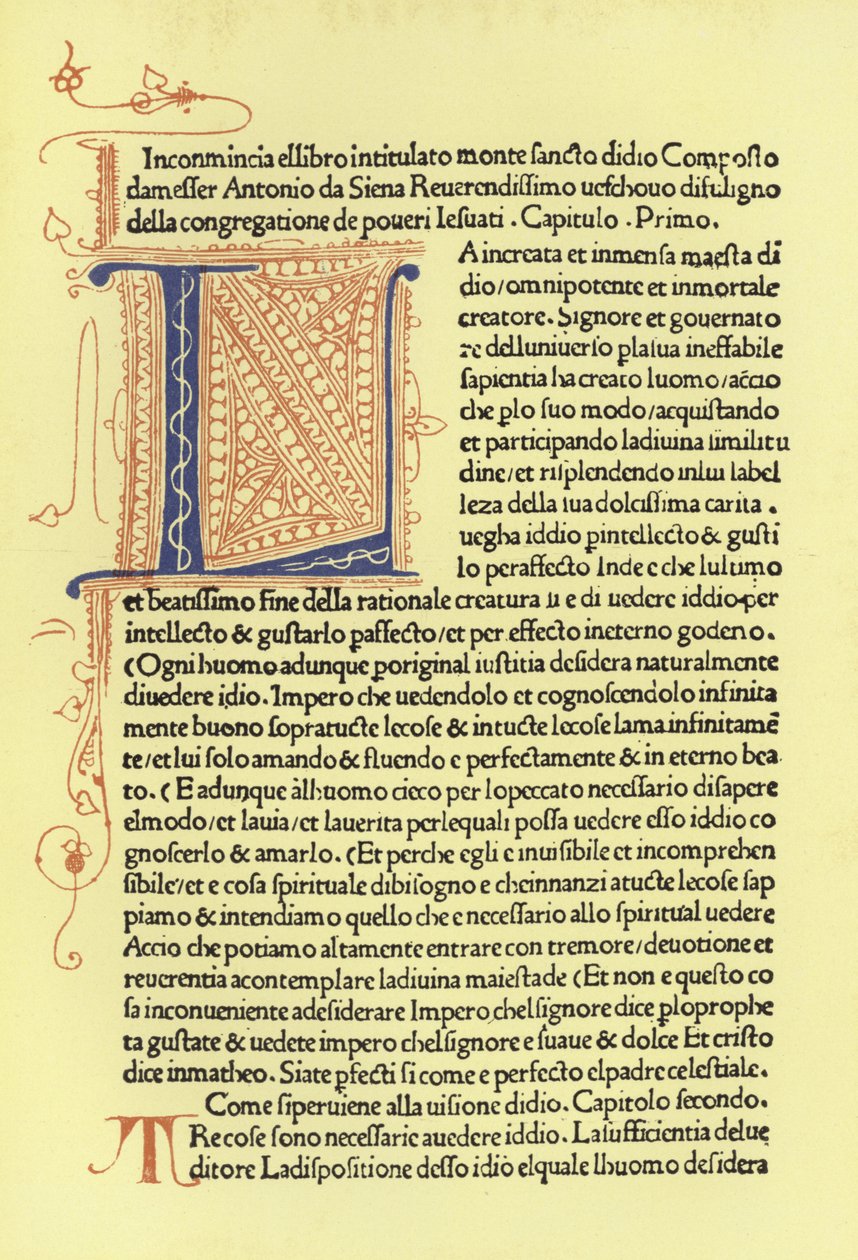 Inconmincia ellibro intitulato monte ſancto didio Compoſto
dameſſer Antonio da Siena Reuerendiſſimo ueſchouo difuligno
della congregatione de poueri Ieſuati . Capitulo . Primo.
LA increata et inmenſa maeſta di
dio/omnipotente et inmortale
creatore. Signore et gouernato
re delluniuerſo ꝑlaſua ineffabile
ſapientia ha creato luomo/accio
che ꝑlo ſuo modo/acquiſtando
et participando ladiuina ſimilitu
dine/et riſplendendo inlui label
leza della ſua dolciſſima carita .
uegha iddio ꝑintellecto & guſti
lo peraffecto Inde e che lultimo
et beatiſſimo fine della rationale creatura ſi e di uedere iddio per
intellecto & guſtarlo ꝑaffecto/et per effecto ineterno goderlo.
(Ogni huomo adunque ꝑoriginal iuſtitia deſidera naturalmente
diuedere idio. Impero che uedendolo et cognoſcendolo infinita
mente buono ſopratucte lecoſe & in tucte lecoſe lama infinitamē
te/et lui ſolo amando & fluendo e perfectamente & in eterno bea
to. (E adunque àlhuomo cieco per lopeccato neceſſario diſapere
elmodo/et lauia/et lauerita perlequali poſſa uedere eſſo iddio co
gnoſcerlo & amarlo. (Et perche egli e inuiſibile et incomprehen
ſibile/et e coſa ſpirituale dibiſogno e cheinnanzi atucte lecoſe ſap
piamo & intendiamo quello che e neceſſario allo ſpiritual uedere
Accio che potiamo altamente entrare con tremore/deuotione et
reuerentia acontemplare ladiuina maieſtade (Et non e queſto co
ſa inconueniente adeſiderare Impero chelſignore dice ꝑloprophe
ta guſtate & uedete impero chelſignore e ſuaue & dolce Et criſto
dice inmatheo. Siate ꝑfecti ſi come e perfecto elpadre celeſtiale.
Come ſiperuiene alla uiſione didio. Capitolo ſecondo.
TRe coſe ſono neceſſarie auedere iddio. Laſufficientia delue
ditore Ladiſpoſitione deſſo idio elquale lhuomo deſidera